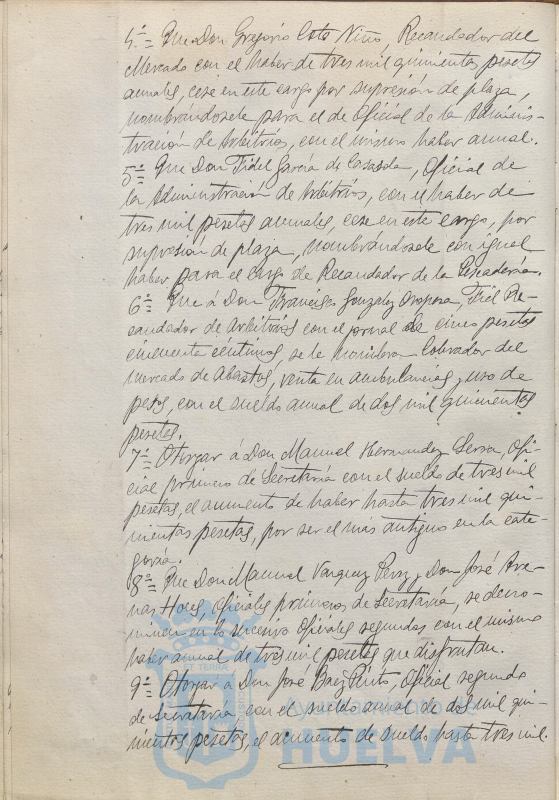 4ª= Que Don Gregorio Coto Niño, Recaudador del
Mercado con el haber de tres mil quinientas pesetas
anuales, cese en este cargo por supresión de plaza,
nombrándosele para el de Oficial de la Adminis-
tración de Arbitrios, con el mismo haber anual.
5ª= Que Don Fidel García de Casasola, Oficial de
la Administración de Arbitrios, con el haber de
tres mil pesetas anuales, cese en este cargo, por
supresión de plaza, nombrándosele con igual
haber para el cargo de Recaudador de la Pescadería.
6ª= Que á Don Francisco Gonzalez Oropesa, Fiel Re-
caudador de arbitrios con el jornal de cinco pesetas
cincuenta céntimos se le nombra Cobrador del
mercado de Abastos, venta en ambulancias y uso de
pesos, con el sueldo anual de dos mil quinientas
pesetas.
7ª= Otorgar á Don Manuel Hernandez Serra, Ofi-
cial primero de Secretaría con el sueldo de tres mil
pesetas, el aumento de haber hasta tres mil qui-
nientas pesetas, por ser el mas antiguo en la cate-
goría.
8ª= Que Don Manuel Vazquez Perez y Don José Are-
nas, Oficiales primeros de Secretaría, se deno-
minen en lo sucesivo Oficiales segundos con el mismo
haber anual de tres mil pesetas que disfrutan.
9ª= Otorgar a Don José Baez Pinto, Oficial segundo
de Secretaría, con el sueldo anual de dos mil qui-
nientas pesetas, el aumento de sueldo hasta tres mil.
Ayuntamiento de
HUELVA